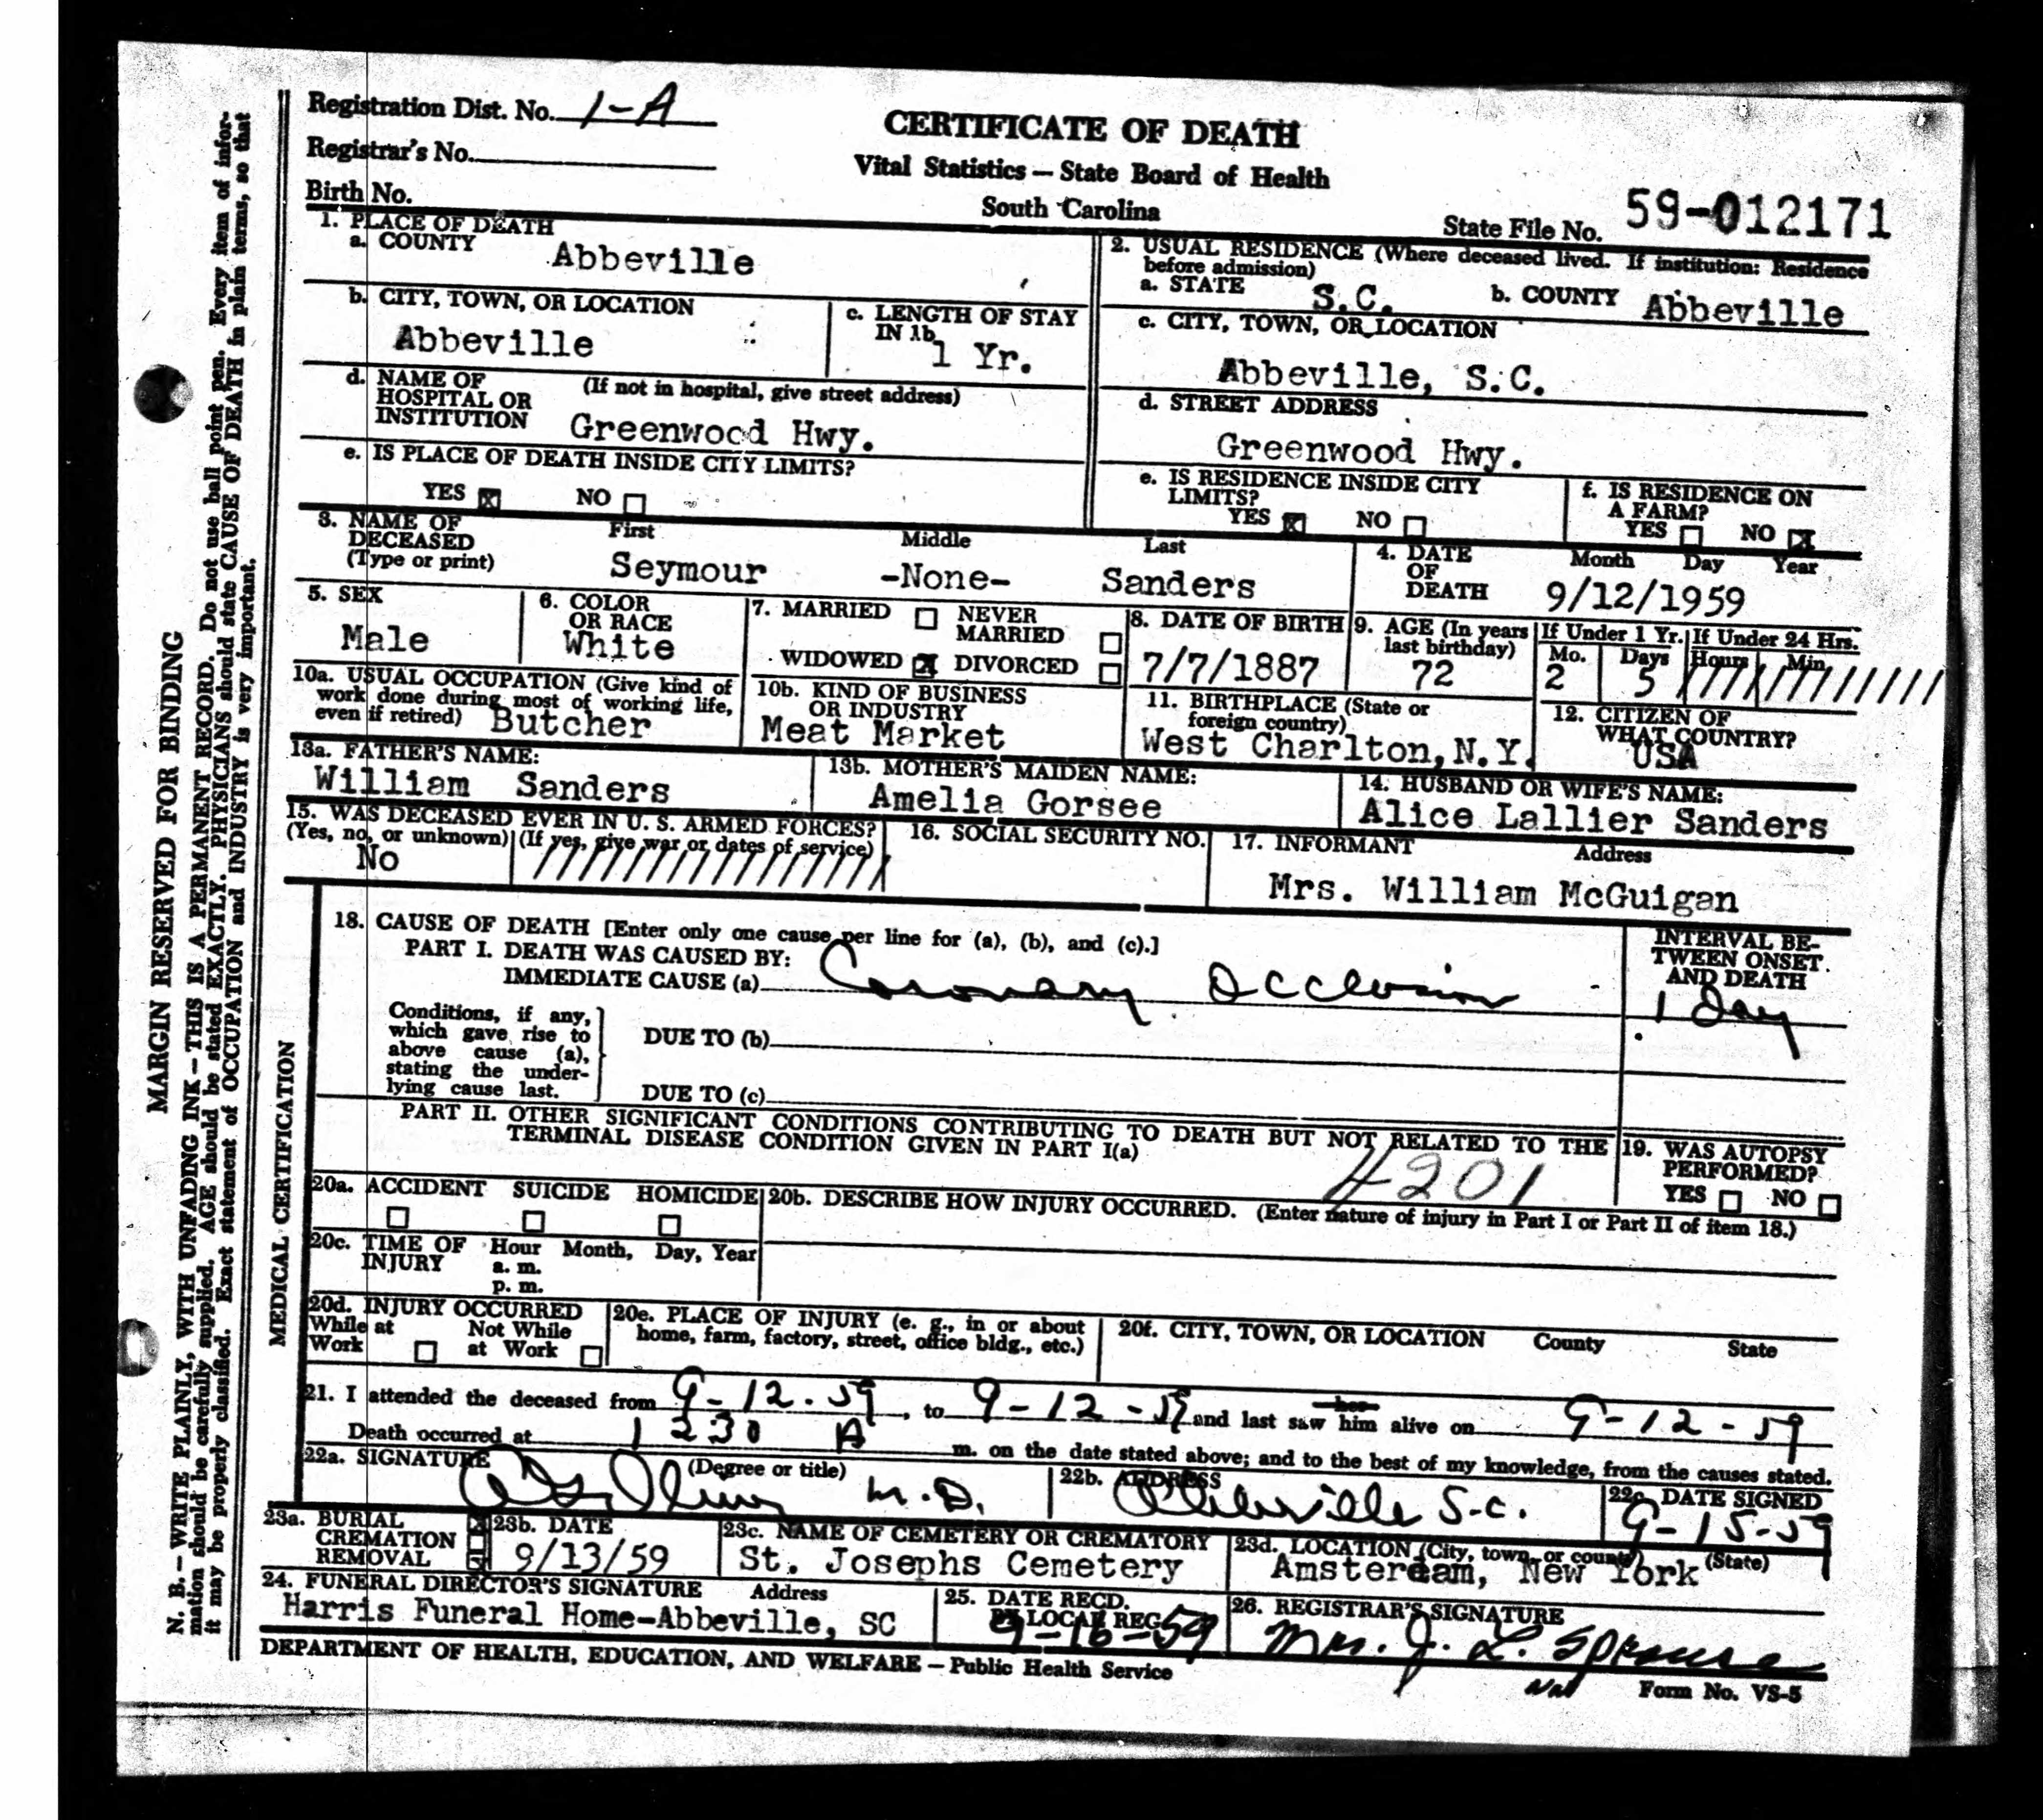 Registration Dist. No. 1-A
Registrar's No.
Birth No.
CERTIFICATE OF DEATH
Vital Statistics — State Board of Health
South Carolina
State File No. 59-012171
1. PLACE OF DEATH
a. COUNTY Abbeville
b. CITY, TOWN, OR LOCATION
Abbeville
c. LENGTH OF STAY
IN 1b
1 Yr.
d. NAME OF (If not in hospital, give street address)
HOSPITAL OR
INSTITUTION Greenwood Hwy.
e. IS PLACE OF DEATH INSIDE CITY LIMITS?
YES x NO
2. USUAL RESIDENCE (Where deceased lived. If institution: Residence
before admission)
a. STATE S.C. b. COUNTY Abbeville
c. CITY, TOWN, OR LOCATION
Abbeville, S.C.
d. STREET ADDRESS
Greenwood Hwy.
e. IS RESIDENCE INSIDE CITY
LIMITS?
YES x NO
f. IS RESIDENCE ON
A FARM?
YES NO x
3. NAME OF First Middle Last
DECEASED
(Type or print) Seymour -None- Sanders
4. DATE Month Day Year
OF
DEATH 9/12/1959
5. SEX
Male
6. COLOR
OR RACE
White
7. MARRIED NEVER
MARRIED
WIDOWED x DIVORCED
8. DATE OF BIRTH
7/7/1887
9. AGE (In years
last birthday)
72
If Under 1 Yr. If Under 24 Hrs.
Mo. Days Hours Min.
2 5 /////////////////
10a. USUAL OCCUPATION (Give kind of
work done during most of working life,
even if retired) Butcher
10b. KIND OF BUSINESS
OR INDUSTRY
Meat Market
11. BIRTHPLACE (State or
foreign country)
West Charlton, N.Y.
12. CITIZEN OF
WHAT COUNTRY?
USA
13a. FATHER'S NAME:
William Sanders
13b. MOTHER'S MAIDEN NAME:
Amelia Gorsee
14. HUSBAND OR WIFE'S NAME:
Alice Lallier Sanders
15. WAS DECEASED EVER IN U. S. ARMED FORCES?
(Yes, no, or unknown) (If yes, give war or dates of service)
No /////////////////
16. SOCIAL SECURITY NO.
17. INFORMANT Address
Mrs. William McGuigan
MEDICAL CERTIFICATION
18. CAUSE OF DEATH [Enter only one cause per line for (a), (b), and (c).]
PART I. DEATH WAS CAUSED BY:
IMMEDIATE CAUSE (a) Coronary Occlusion
INTERVAL BE-
TWEEN ONSET
AND DEATH
1 Day
Conditions, if any,
which gave rise to
above cause (a),
stating the under-
lying cause last.
DUE TO (b)
DUE TO (c)
PART II. OTHER SIGNIFICANT CONDITIONS CONTRIBUTING TO DEATH BUT NOT RELATED TO THE
TERMINAL DISEASE CONDITION GIVEN IN PART I(a)
4201
19. WAS AUTOPSY
PERFORMED?
YES NO
20a. ACCIDENT SUICIDE HOMICIDE
20b. DESCRIBE HOW INJURY OCCURRED. (Enter nature of injury in Part I or Part II of item 18.)
20c. TIME OF Hour Month, Day, Year
INJURY a. m.
p. m.
20d. INJURY OCCURRED
While at Not While
Work at Work
20e. PLACE OF INJURY (e. g., in or about
home, farm, factory, street, office bldg., etc.)
20f. CITY, TOWN, OR LOCATION County State
21. I attended the deceased from 9-12-59, to 9-12-59 and last saw her him alive on 9-12-59
Death occurred at 1230 A m. on the date stated above; and to the best of my knowledge, from the causes stated.
22a. SIGNATURE (Degree or title)
M.D.
22b. ADDRESS
Abbeville S.C.
22c. DATE SIGNED
9-15-59
23a. BURIAL x
CREMATION
REMOVAL x
23b. DATE
9/13/59
23c. NAME OF CEMETERY OR CREMATORY
St. Josephs Cemetery
23d. LOCATION (City, town, or county) (State)
Amsterdam, New York
24. FUNERAL DIRECTOR'S SIGNATURE Address
Harris Funeral Home-Abbeville, SC
25. DATE RECD.
BY LOCAL REG.
9-16-59
26. REGISTRAR'S SIGNATURE
Mrs. J. L. Sprouse
DEPARTMENT OF HEALTH, EDUCATION, AND WELFARE — Public Health Service
Form No. VS-5
MARGIN RESERVED FOR BINDING
N. B. — WRITE PLAINLY, WITH UNFADING INK — THIS IS A PERMANENT RECORD. Do not use ball point pen. Every item of infor-
mation should be carefully supplied. AGE should be stated EXACTLY. PHYSICIANS should state CAUSE OF DEATH in plain terms, so that
it may be properly classified. Exact statement of OCCUPATION and INDUSTRY is very important.